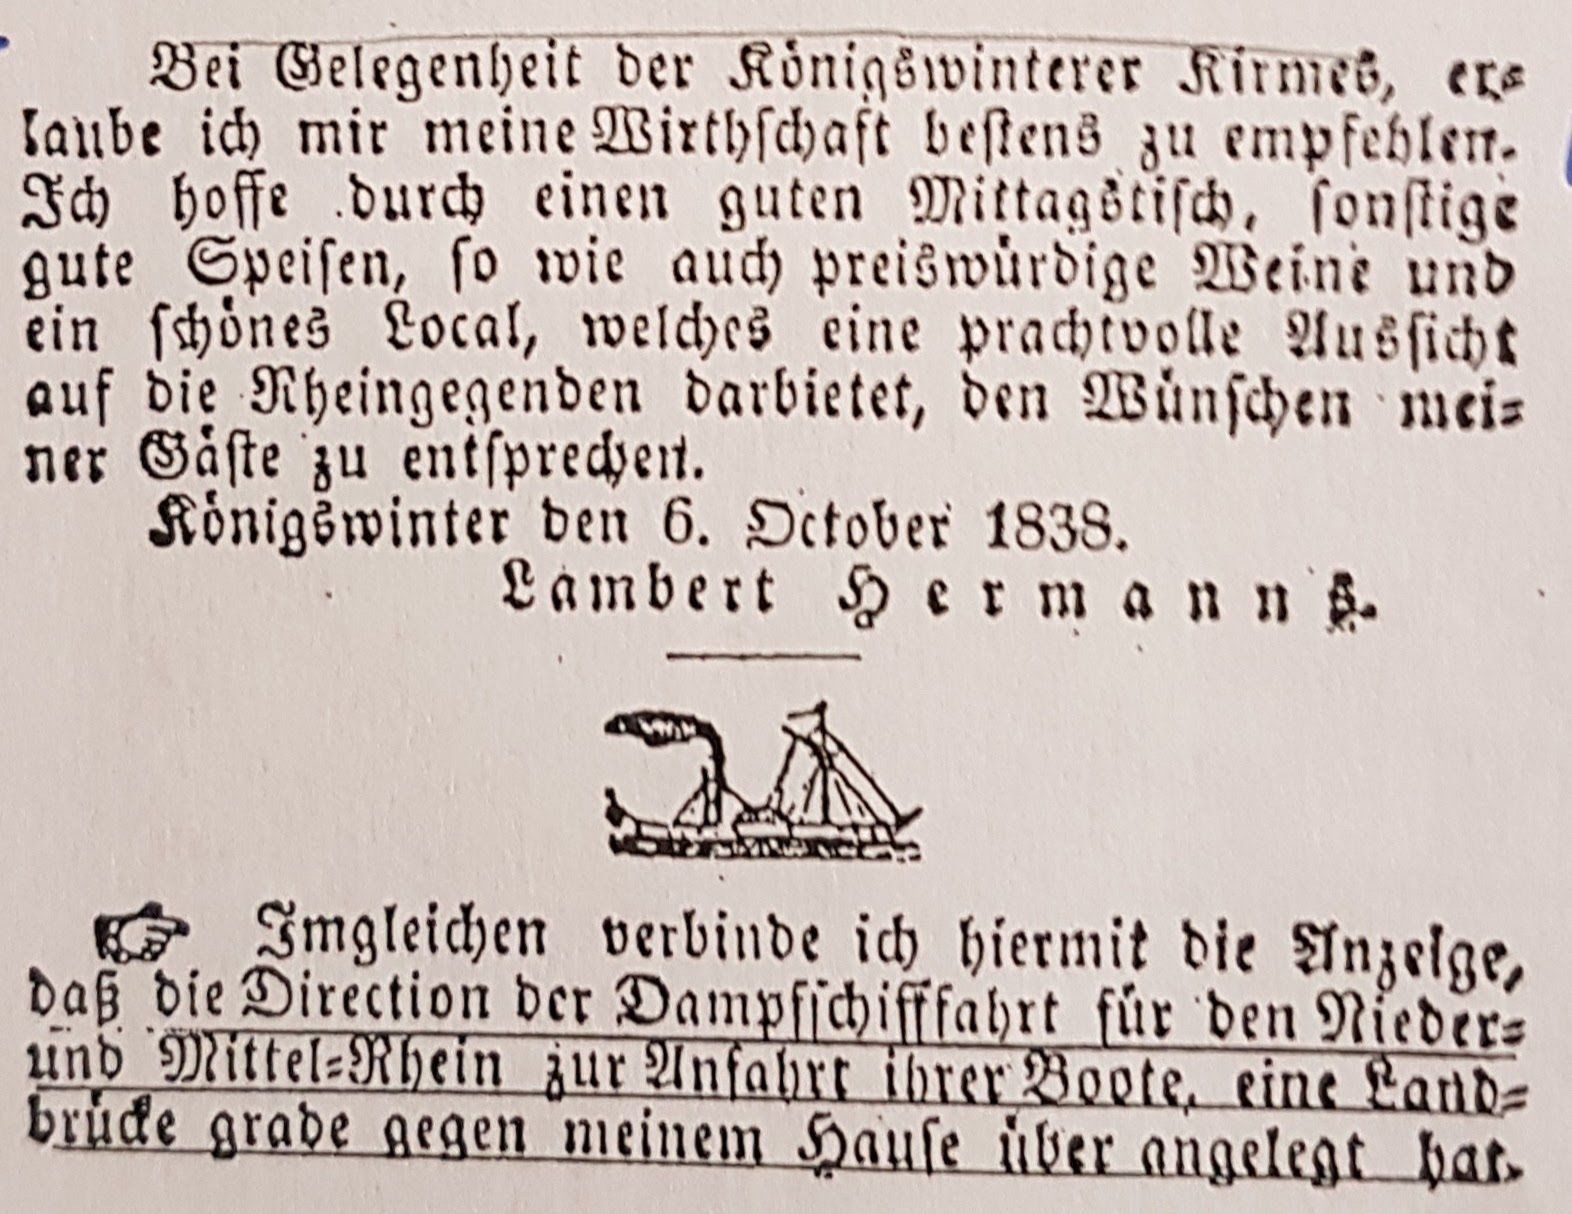 Bei Gelegenheit der Königswinterer Kirmes, er=
laube ich mir meine Wirthschaft bestens zu empfehlen.
Ich hoffe durch einen guten Mittagstisch, sonstige
gute Speisen, so wie auch preiswürdige Weine und
ein schönes Local, welches eine prachtvolle Aussicht
auf die Rheingegenden darbietet, den Wünschen mei=
ner Gäste zu entsprechen.
Königswinter den 6. October 1838.
Lambert Hermanns.
☞ Imgleichen verbinde ich hiermit die Anzeige,
daß die Direction der Dampfschifffahrt für den Nieder=
und Mittel=Rhein zur Anfahrt ihrer Boote, eine Land=
brücke grade gegen meinem Hause über angelegt hat.